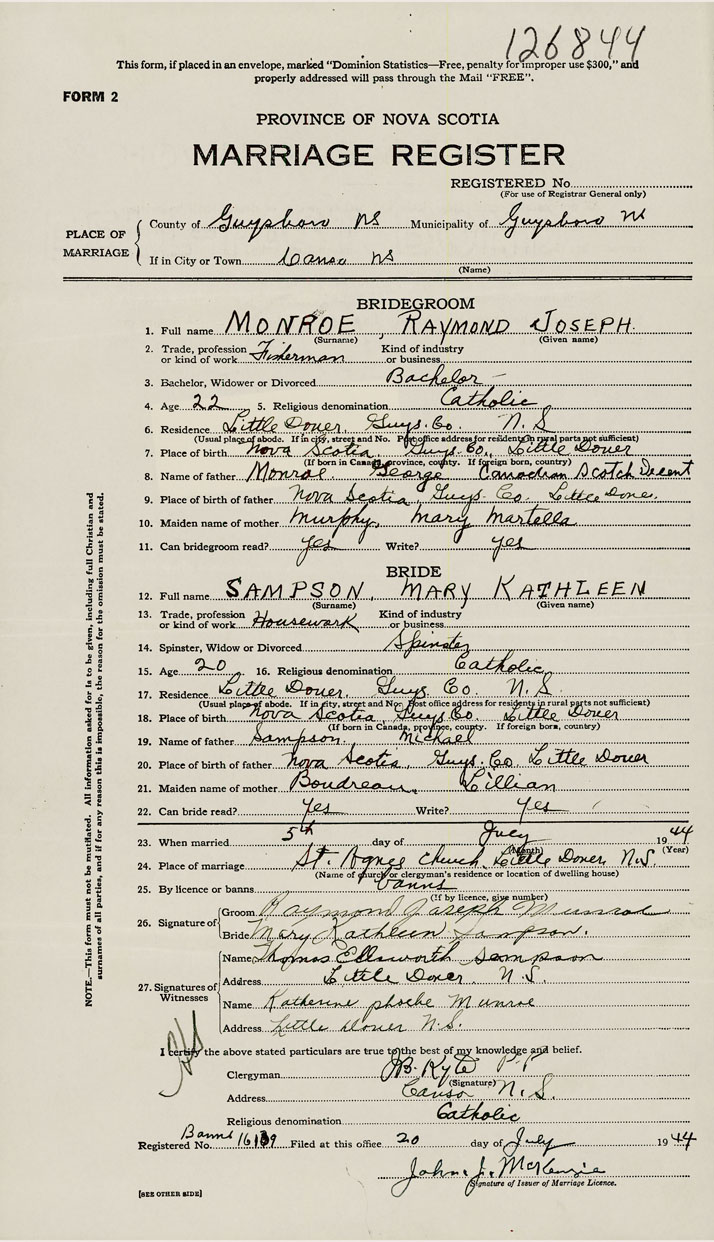 126844
This form, if placed in an envelope, marked "Dominion Statistics—Free, penalty for improper use $300," and
properly addressed will pass through the Mail "FREE".
FORM 2
PROVINCE OF NOVA SCOTIA
MARRIAGE REGISTER
REGISTERED No.
(For use of Registrar General only)
PLACE OF MARRIAGE
County of Guysboro NS Municipality of Guysboro NS
If in City or Town Canso NS
(Name)
BRIDEGROOM
1. Full name MONROE, RAYMOND JOSEPH.
(Surname) (Given name)
2. Trade, profession or kind of work Fisherman Kind of industry or business
3. Bachelor, Widower or Divorced Bachelor
4. Age 22 5. Religious denomination Catholic
6. Residence Little Dover, Guys. Co. N. S
(Usual place of abode. If in city, street and No. Post office address for residents in rural parts not sufficient)
7. Place of birth Nova Scotia, Guys. Co., Little Dover
(If born in Canada, province, county. If foreign born, country)
8. Name of father Monroe George Canadian Scotch Decent
9. Place of birth of father Nova Scotia, Guys. Co. Little Dover
10. Maiden name of mother Murphy, Mary Martella
11. Can bridegroom read? yes Write? yes
BRIDE
12. Full name SAMPSON, MARY KATHLEEN
(Surname) (Given name)
13. Trade, profession or kind of work Housework Kind of industry or business
14. Spinster, Widow or Divorced Spinster
15. Age 20 16. Religious denomination Catholic
17. Residence Little Dover, Guys. Co. N. S.
(Usual place of abode. If in city, street and No. Post office address for residents in rural parts not sufficient)
18. Place of birth Nova Scotia, Guys Co. Little Dover
(If born in Canada, province, county. If foreign born, country)
19. Name of father Sampson. Michael
20. Place of birth of father Nova Scotia, Guys. Co. Little Dover
21. Maiden name of mother Boudreau, Lillian
22. Can bride read? yes Write? yes
23. When married 5th day of July 1944
(Month) (Year)
24. Place of marriage St. Agnes Church, Little Dover, N.S.
(Name of church or clergyman's residence or location of dwelling house)
25. By licence or banns banns
(If by licence, give number)
26. Signature of
Groom Raymond Joseph Munroe
Bride Mary Kathleen Sampson.
27. Signatures of Witnesses
Name Thomas Ellsworth Sampson
Address Little Dover, N. S.
Name Katherine phoebe Munroe
Address Little Dover N.S.
I certify the above stated particulars are true to the best of my knowledge and belief.
Clergyman Kyte P.P.
(Signature)
Address Canso N. S.
Religious denomination Catholic
Banns
Registered No. Filed at this office 20 day of July 1944
John J. McKenzie
Signature of Issuer of Marriage Licence.
[SEE OTHER SIDE]
NOTE.—This form must not be mutilated. All information asked for is to be given, including full Christian and
surnames of all parties, and if for any reason this is impossible, the reason for the omission must be stated.